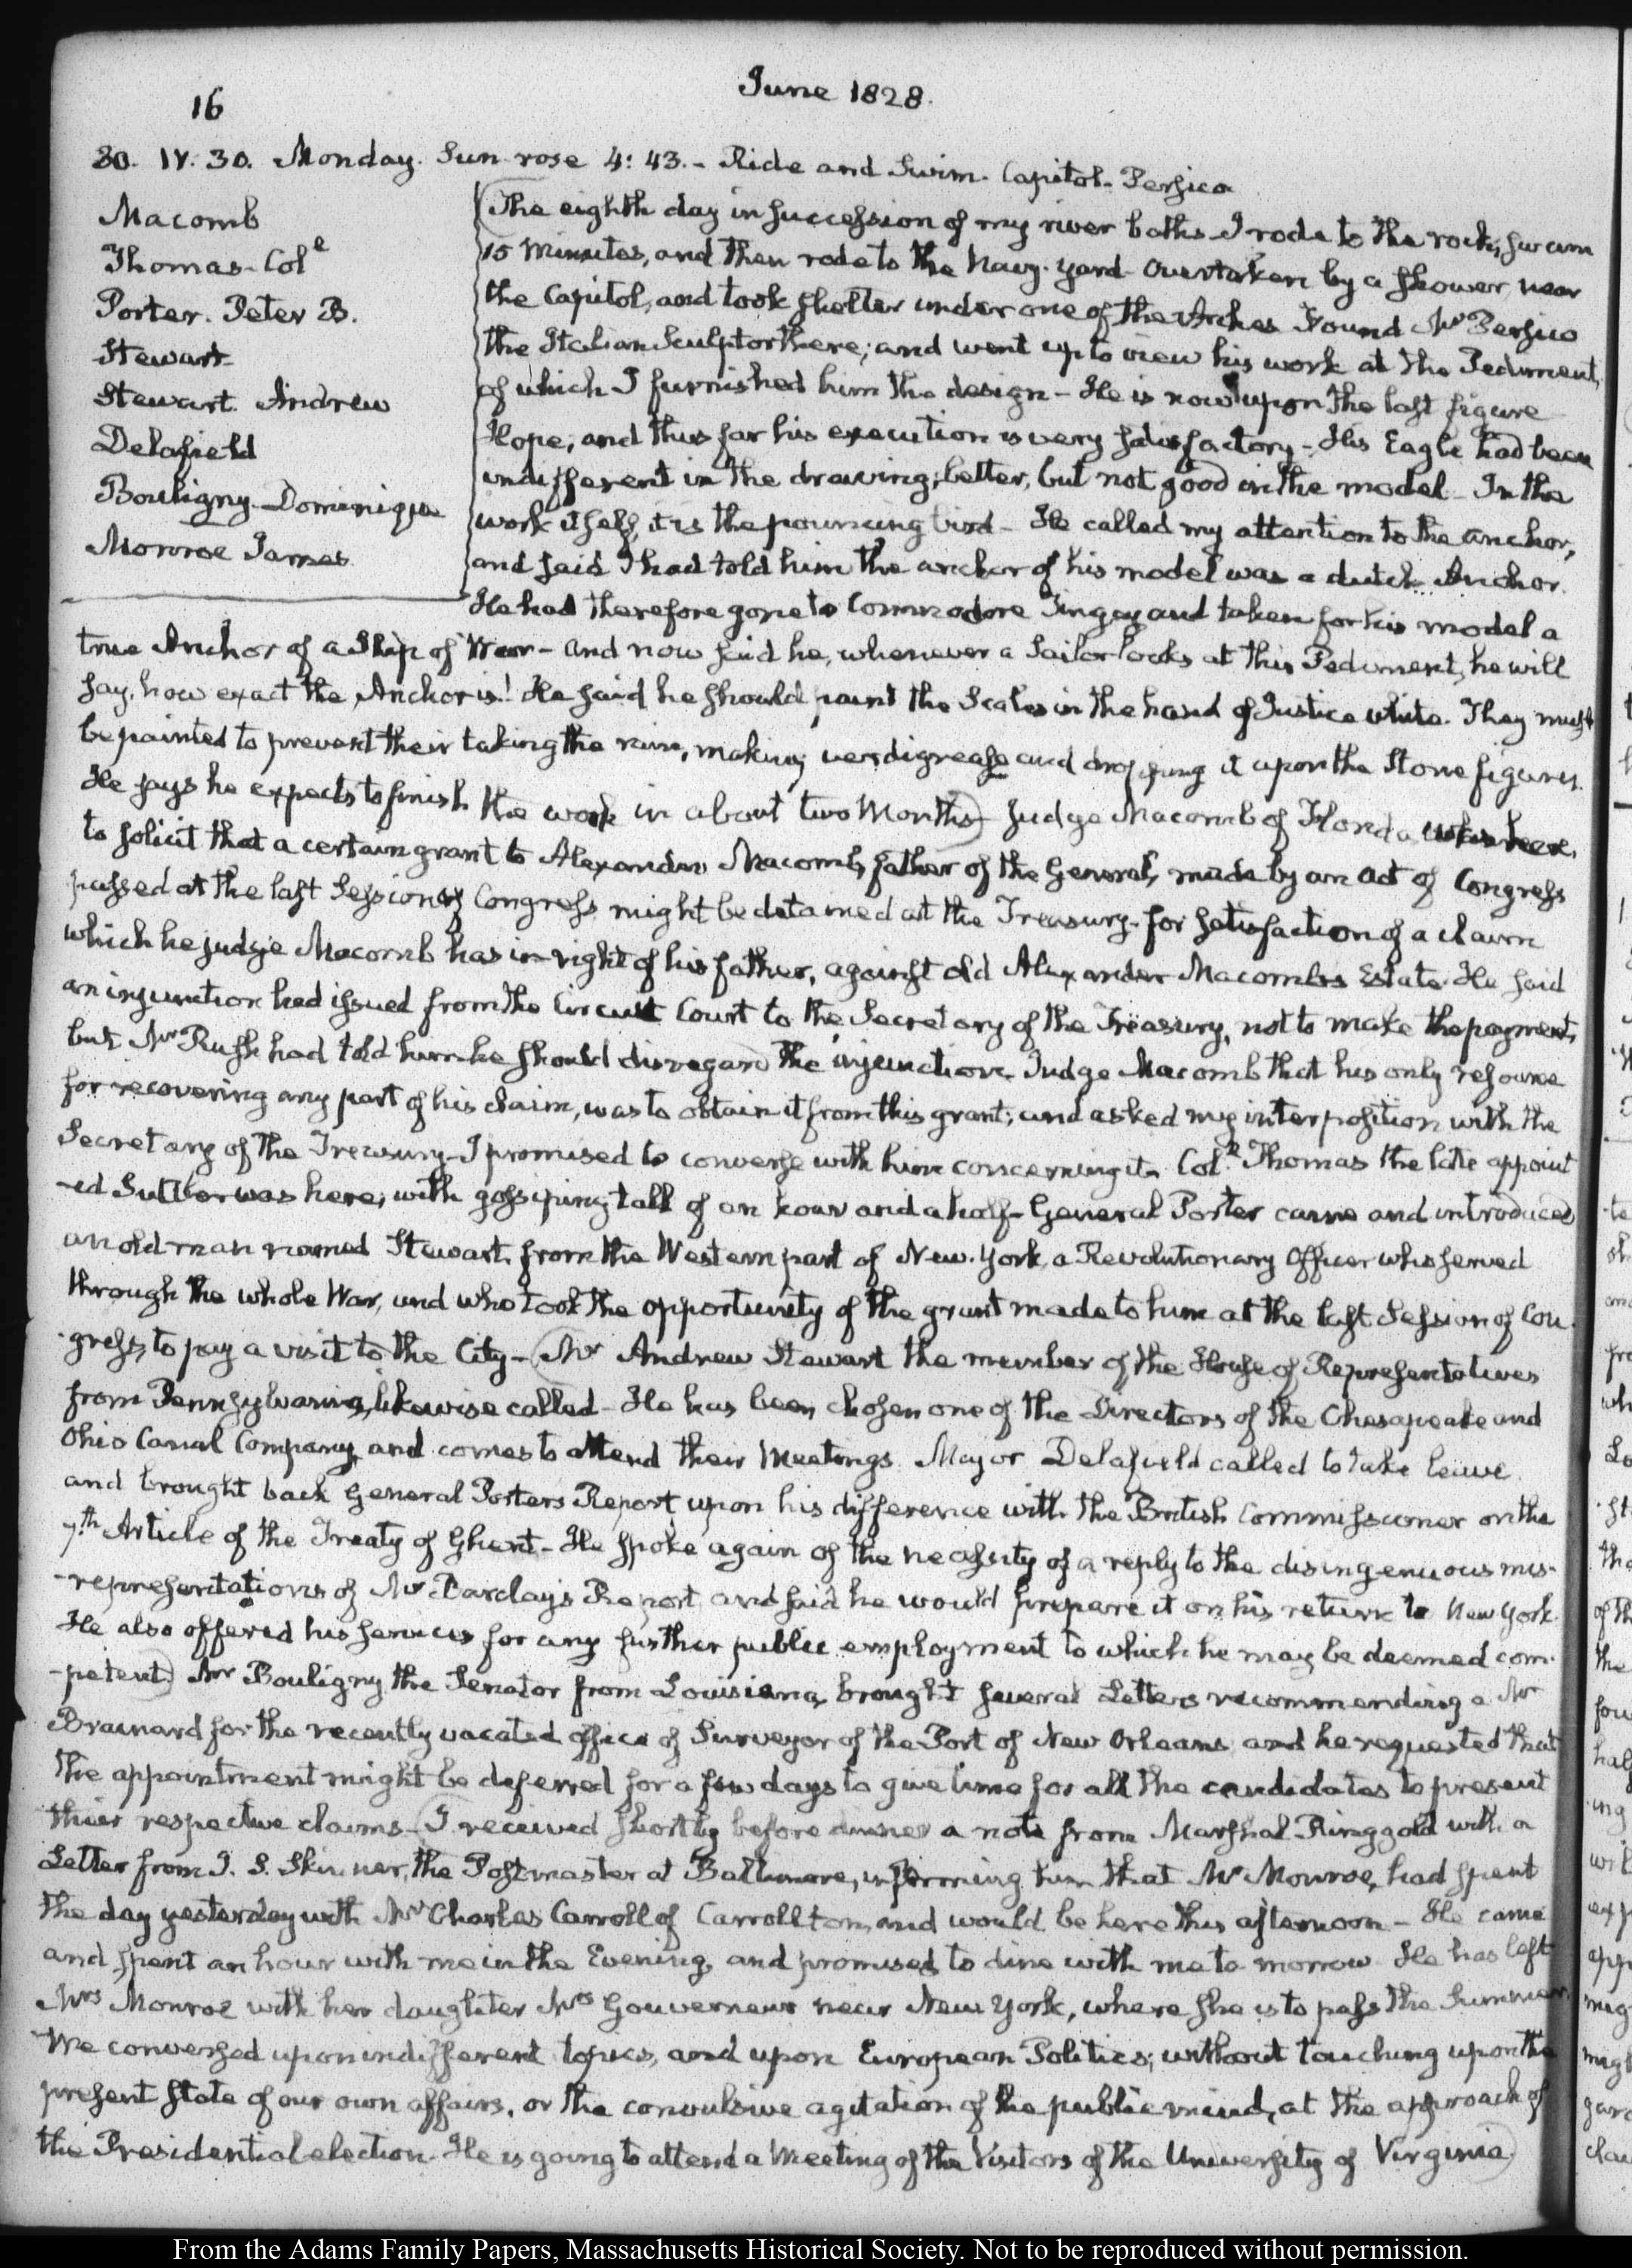 16
June 1828.
30. IV. 30. Monday. Sun rose 4: 43.- Ride and Swim. Capitol. Persico
Macomb
Thomas. Col.e
Porter. Peter B.
Stewart
Stewart. Andrew
Delafield
Bouligny. Dominique
Monroe James
The eighth day in succession of my river baths. I rode to the rock, swam
15 Minutes, and then rode to the Navy-yard. Overtaken by a shower near
the Capitol, and took shelter under one of the Arches. Found Mr Persico
the Italian Sculptor there; and went up to view his work at the Pediment,
of which I furnished him the design - He is now upon the last figure
Hope, and thus far his execution is very satisfactory - His Eagle had been
indifferent in the drawing; better, but not good in the model - In the
work itself, it is the pouncing bird - He called my attention to the anchor,
and said I had told him the anchor of his model was a dutch Anchor.
He had therefore gone to Commodore Tingey and taken for his model a
true Anchor of a Ship of War - and now said he, whenever a Sailor looks at this Pediment, he will
say, how exact the Anchor is! He said he should paint the Scales in the hand of Justice white. They must
be painted to prevent their taking the rain, making verdigrease and dropping it upon the Stone figures.
He says he expects to finish the work in about two Months) Judge Macomb of Florida was here,
to solicit that a certain grant to Alexander Macomb, father of the General, made by an Act of Congress
passed at the last Session of Congress might be detained at the Treasury for satisfaction of a claim
which he judge Macomb has in right of his father, against old Alexander Macomb's Estate. He said
an injunction had issued from the Circuit Court to the Secretary of the Treasury, not to make the payment,
but Mr Rush had told him he should disregard the injunction. Judge Macomb that his only resource
for recovering any part of his claim, was to obtain it from this grant; and asked my interposition with the
Secretary of the Treasury - I promised to converse with him concerning it. Col.l Thomas the late appoint
-ed Suttler was here, with gossiping talk of an hour and a half - General Porter came and introduced
an old man named Stewart, from the Western part of New-York, a Revolutionary Officer who served
through the whole War, and who took the opportunity of the grant made to him at the last Session of Con-
-gress, to pay a visit to the City - (Mr Andrew Stewart the member of the House of Representatives
from Pennsylvania, likewise called - He has been chosen one of the Directors of the Chesapeake and
Ohio Canal Company, and comes to attend their Meetings. Major Delafield called to take leave
and brought back General Porters Report upon his difference with the British Commissioner on the
7.th Article of the Treaty of Ghent - He spoke again of the necessity of a reply to the disingenuous mis-
-representations of Mr Barclay's Report, and said he would prepare it on his return to New York.
He also offered his services for any further public employment to which he may be deemed com-
-petent) Mr Bouligny the Senator from Louisiana, brought several Letters recommending a Mr
Brainard for the recently vacated office of Surveyor of the Port of New Orleans and he requested that
the appointment might be deferred for a few days to give time for all the candidates to present
their respective claims - (I received shortly before dinner a note from Marshal Ringgold with a
Letter from J. S. Skinner, the Postmaster at Baltimore, informing him that Mr Monroe, had spent
the day yesterday with Mr Charles Carroll of Carrollton, and would be here this afternoon - He came
and spent an hour with me in the Evening, and promised to dine with me to morrow. He has left
Mrs Monroe with her daughter Mrs Gouverneur near New York, where she is to pass the Summer.
We conversed upon indifferent topics, and upon European Politics; without touching upon the
present state of our own affairs, or the convulsive agitation of the public mind, at the approach of
the Presidential election. He is going to attend a Meeting of the Visitors of the University of Virginia)
From the Adams Family Papers, Massachusetts Historical Society. Not to be reproduced without permission.